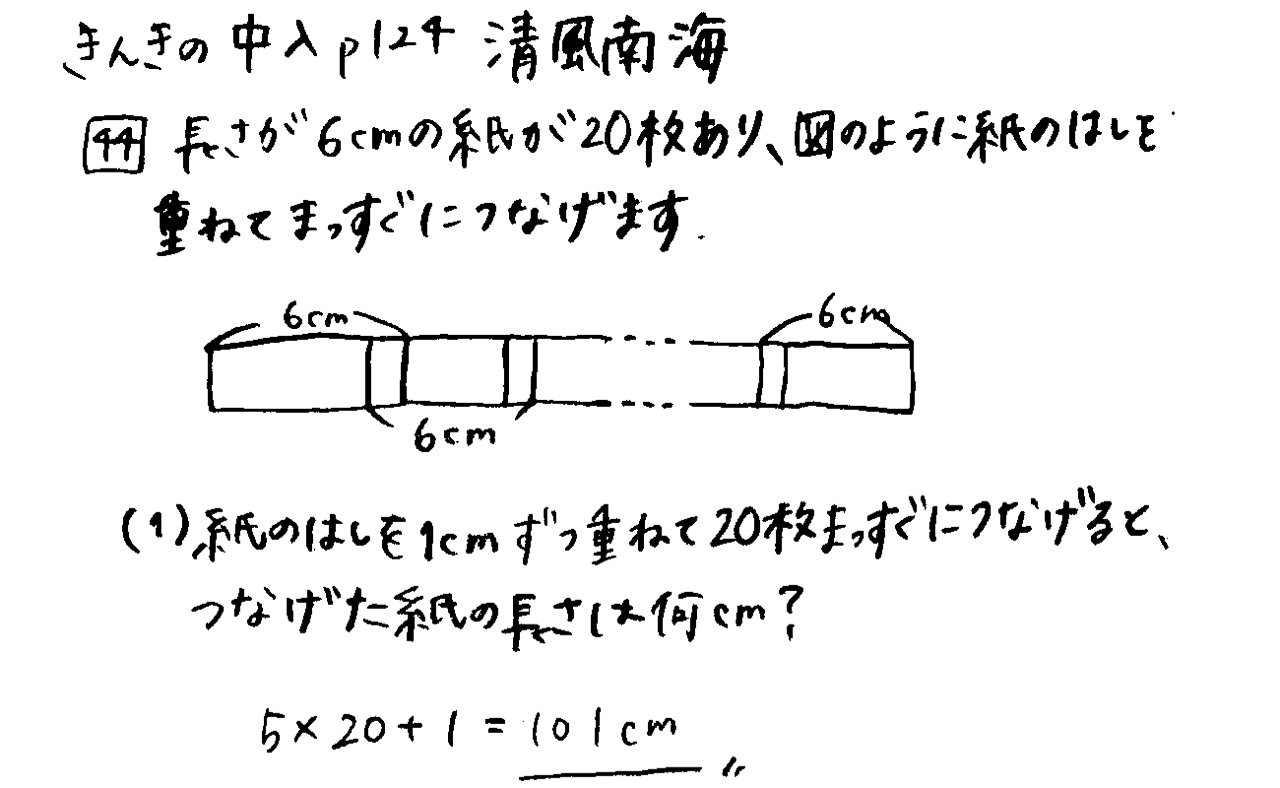 きんきの中入p124 清風南海
44 長さが6cmの紙が20枚あり、図のように紙のはしを
重ねてまっすぐにつなげます.
6cm 6cm
6cm
(1)紙のはしを1cmずつ重ねて20枚まっすぐにつなげると、
つなげた紙の長さは何cm?
5×20+1=101cm